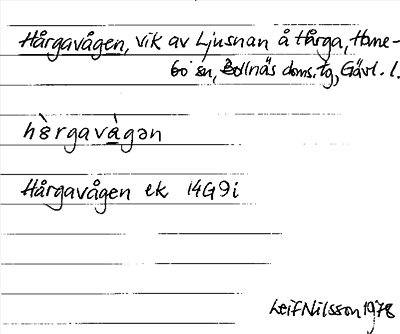 Hårgavågen, vik av Ljusnan å Hårga, Hane-
bo sn, Bollnäs doms.tg, Gävl. l.
hårgavàgən
Hårgavågen ek 14G9i
Leif Nilsson 1978